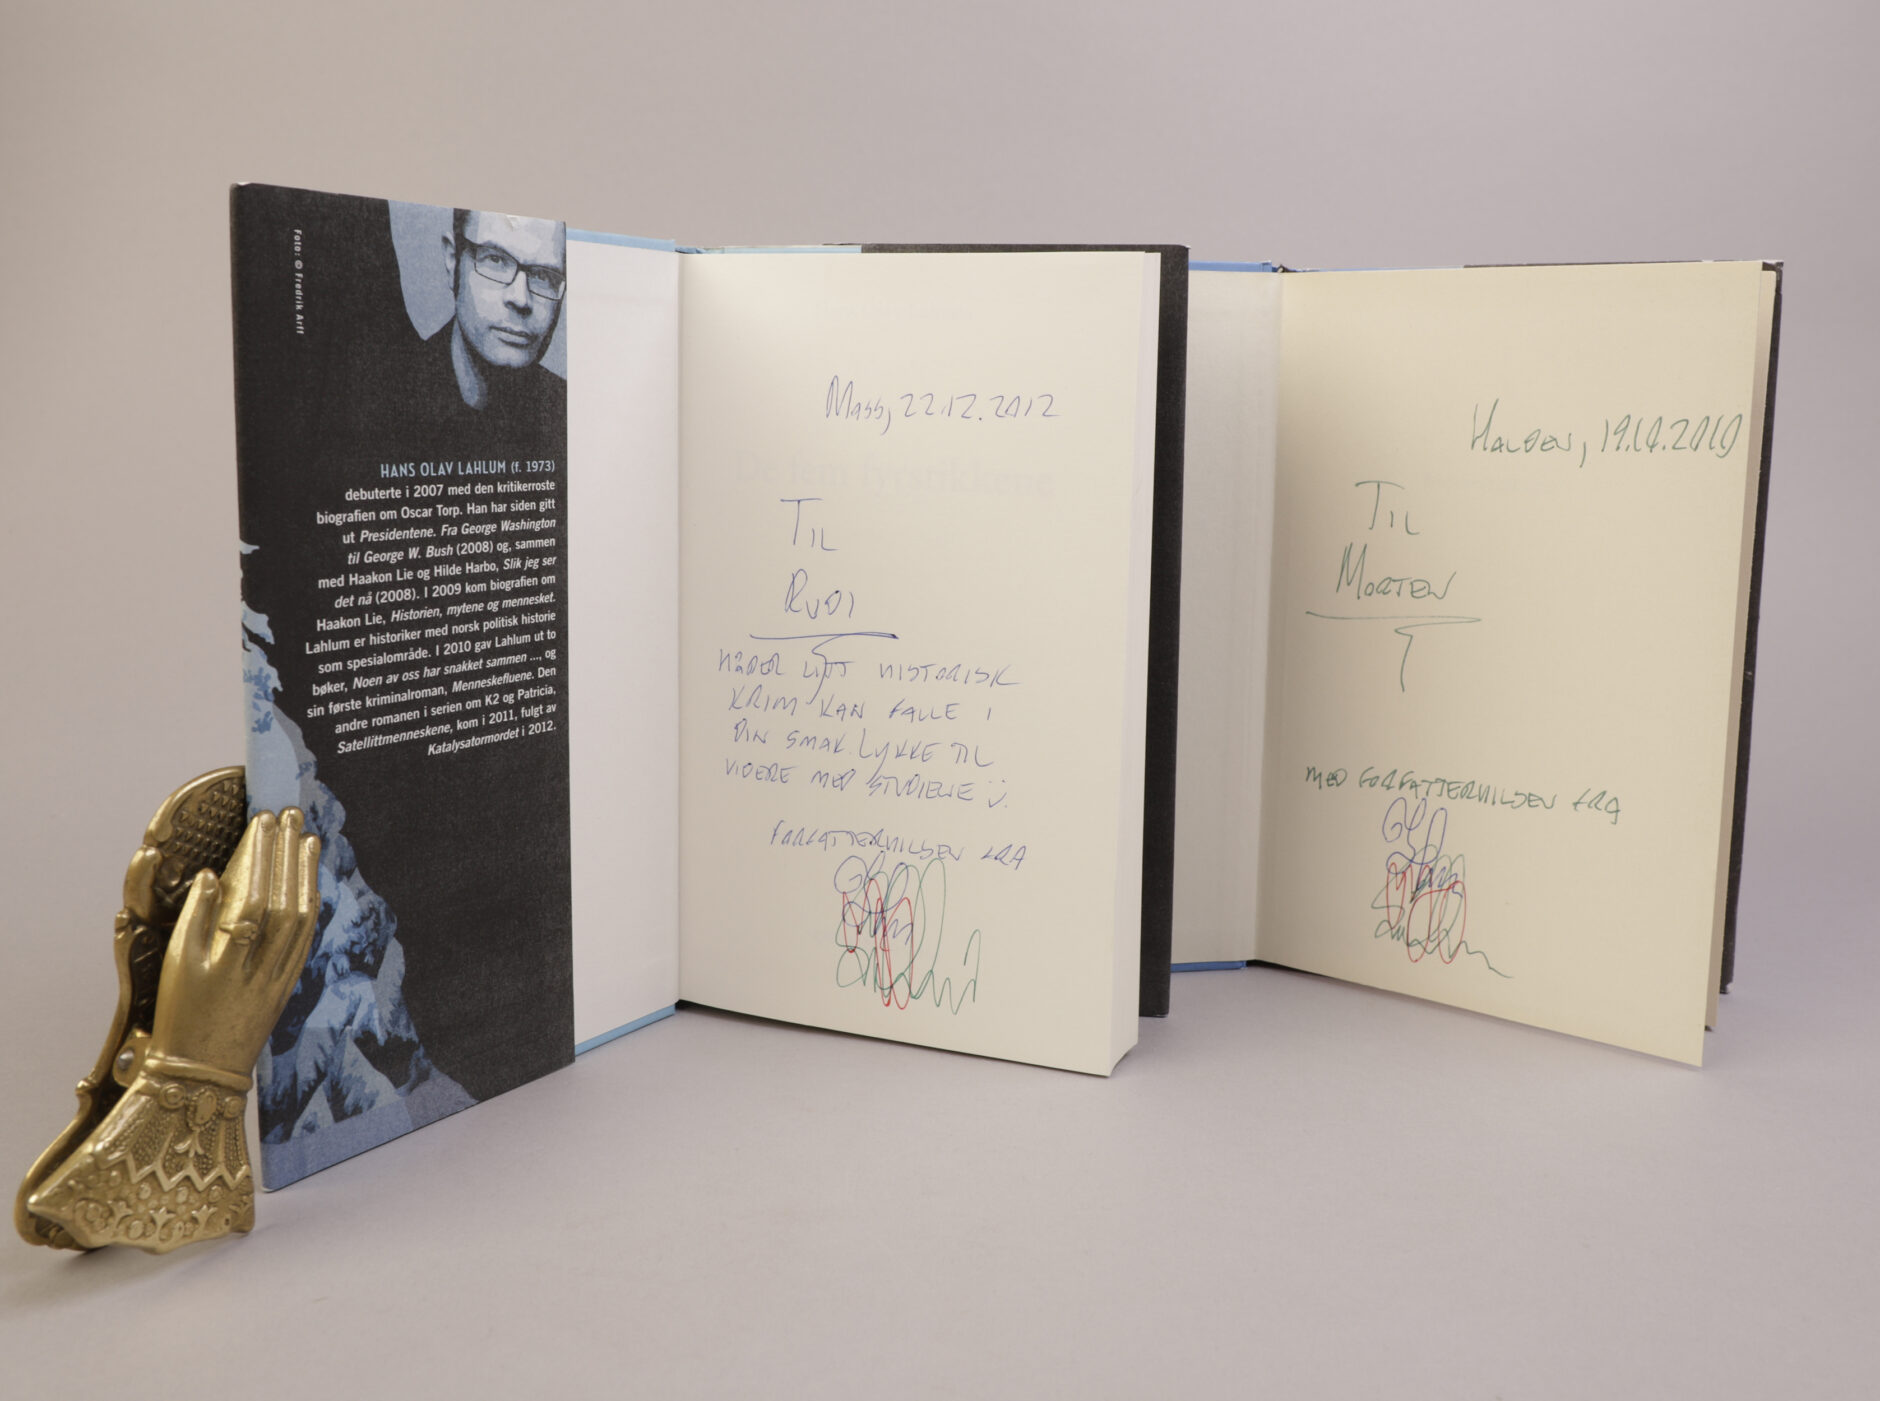 Foto: © Fredrik Arff
HANS OLAV LAHLUM (f. 1973)
debuterte i 2007 med den kritikerroste
biografien om Oscar Torp. Han har siden gitt
ut Presidentene. Fra George Washington
til George W. Bush (2008) og, sammen
med Haakon Lie og Hilde Harbo, Slik jeg ser
det nå (2008). I 2009 kom biografien om
Haakon Lie, Historien, mytene og mennesket.
Lahlum er historiker med norsk politisk historie
som spesialområde. I 2010 gav Lahlum ut to
bøker, Noen av oss har snakket sammen ..., og
sin første kriminalroman, Menneskefluene. Den
andre romanen i serien om K2 og Patricia,
Satellittmenneskene, kom i 2011, fulgt av
Katalysatormordet i 2012.
Moss, 22.12.2012
TIL
RUDI
HÅPER LITT HISTORISK
KRIM KAN FALLE I
DIN SMAK. LYKKE TIL
VIDERE MED STUDIENE
FORFATTERHILSEN FRA
HALDEN, 19.10.2010
TIL
MORTEN
MED FORFATTERHILSEN FRA